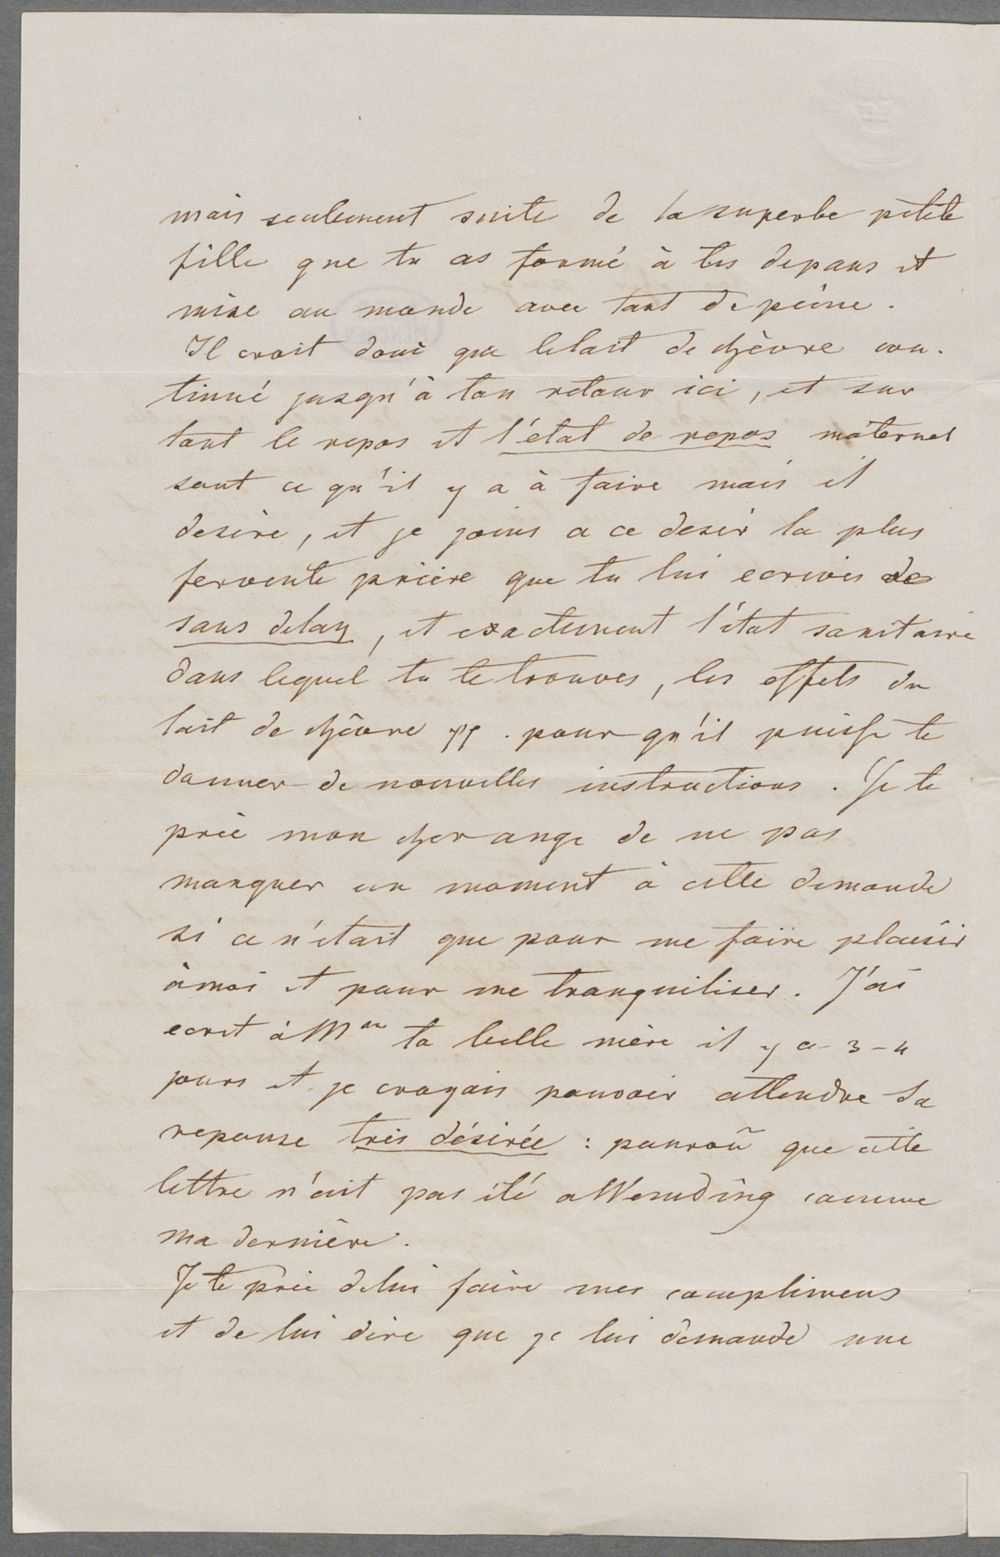 mais seulement suite de la superbe petite
fille que tu as formé à tes depans et
mise au monde avec tant de peine.
Il croit donc que le lait de chèvre con-
tinué jusqu'à ton retour ici, et sur
tout le repos et l'état de repos maternel
sont ce qu'il y a à faire mais il
desire, et je joins a ce desir la plus
fervente prière que tu lui ecrives
sans delay, et exactement l'état sanitaire
dans lequel tu te trouves, les effets du
lait de chèvre pp. pour qu'il puisse te
donner de nouvelles instructions. Je te
prie mon cher ange de ne pas
manquer un moment à cette demande
si ce n'etait que pour me faire plaisir
à moi et pour me tranquiliser. J'ai
ecrit à Mme ta belle mère il y a 3-4
jours et je croyais pouvoir attendre sa
reponse très désirée : pourvû que cette
lettre n'ait pas été a Wemding comme
ma dernière.
Je te prie de lui faire mes complimens
et de lui dire que je lui demande une